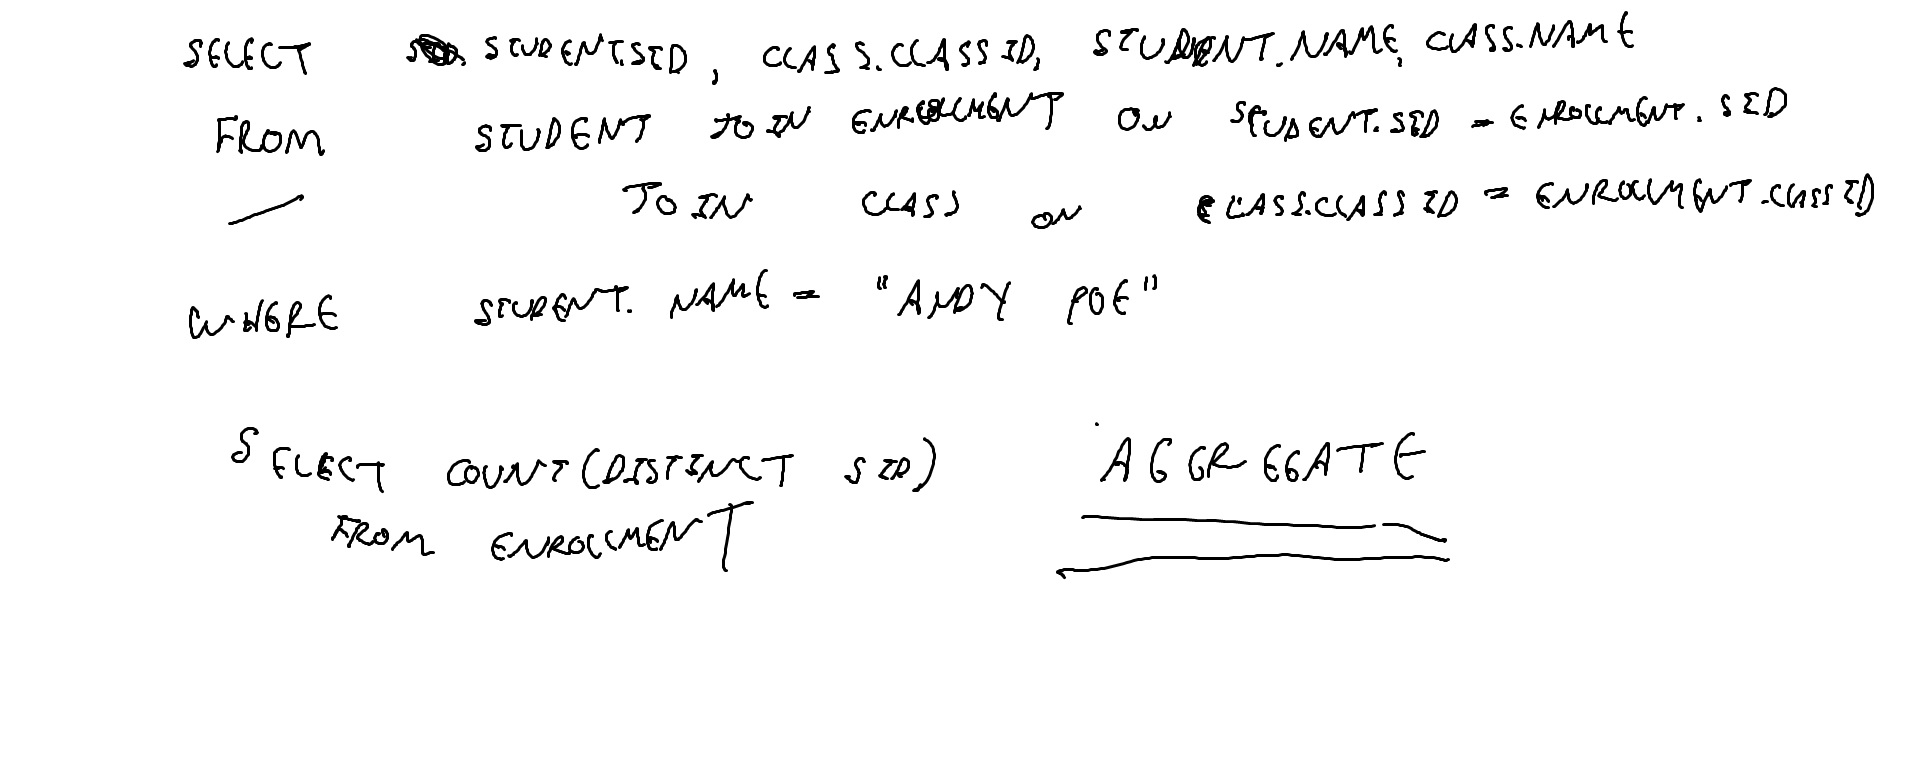 SELECT STUDENT.SID, CLASS.CLASSID, STUDENT.NAME, CLASS.NAME
FROM STUDENT JOIN ENROLLMENT ON STUDENT.SID = ENROLLMENT.SID
JOIN CLASS ON CLASS.CLASSID = ENROLLMENT.CLASSID
WHERE STUDENT.NAME = "ANDY POE"
SELECT COUNT(DISTINCT SID) AGGREGATE
FROM ENROLLMENT